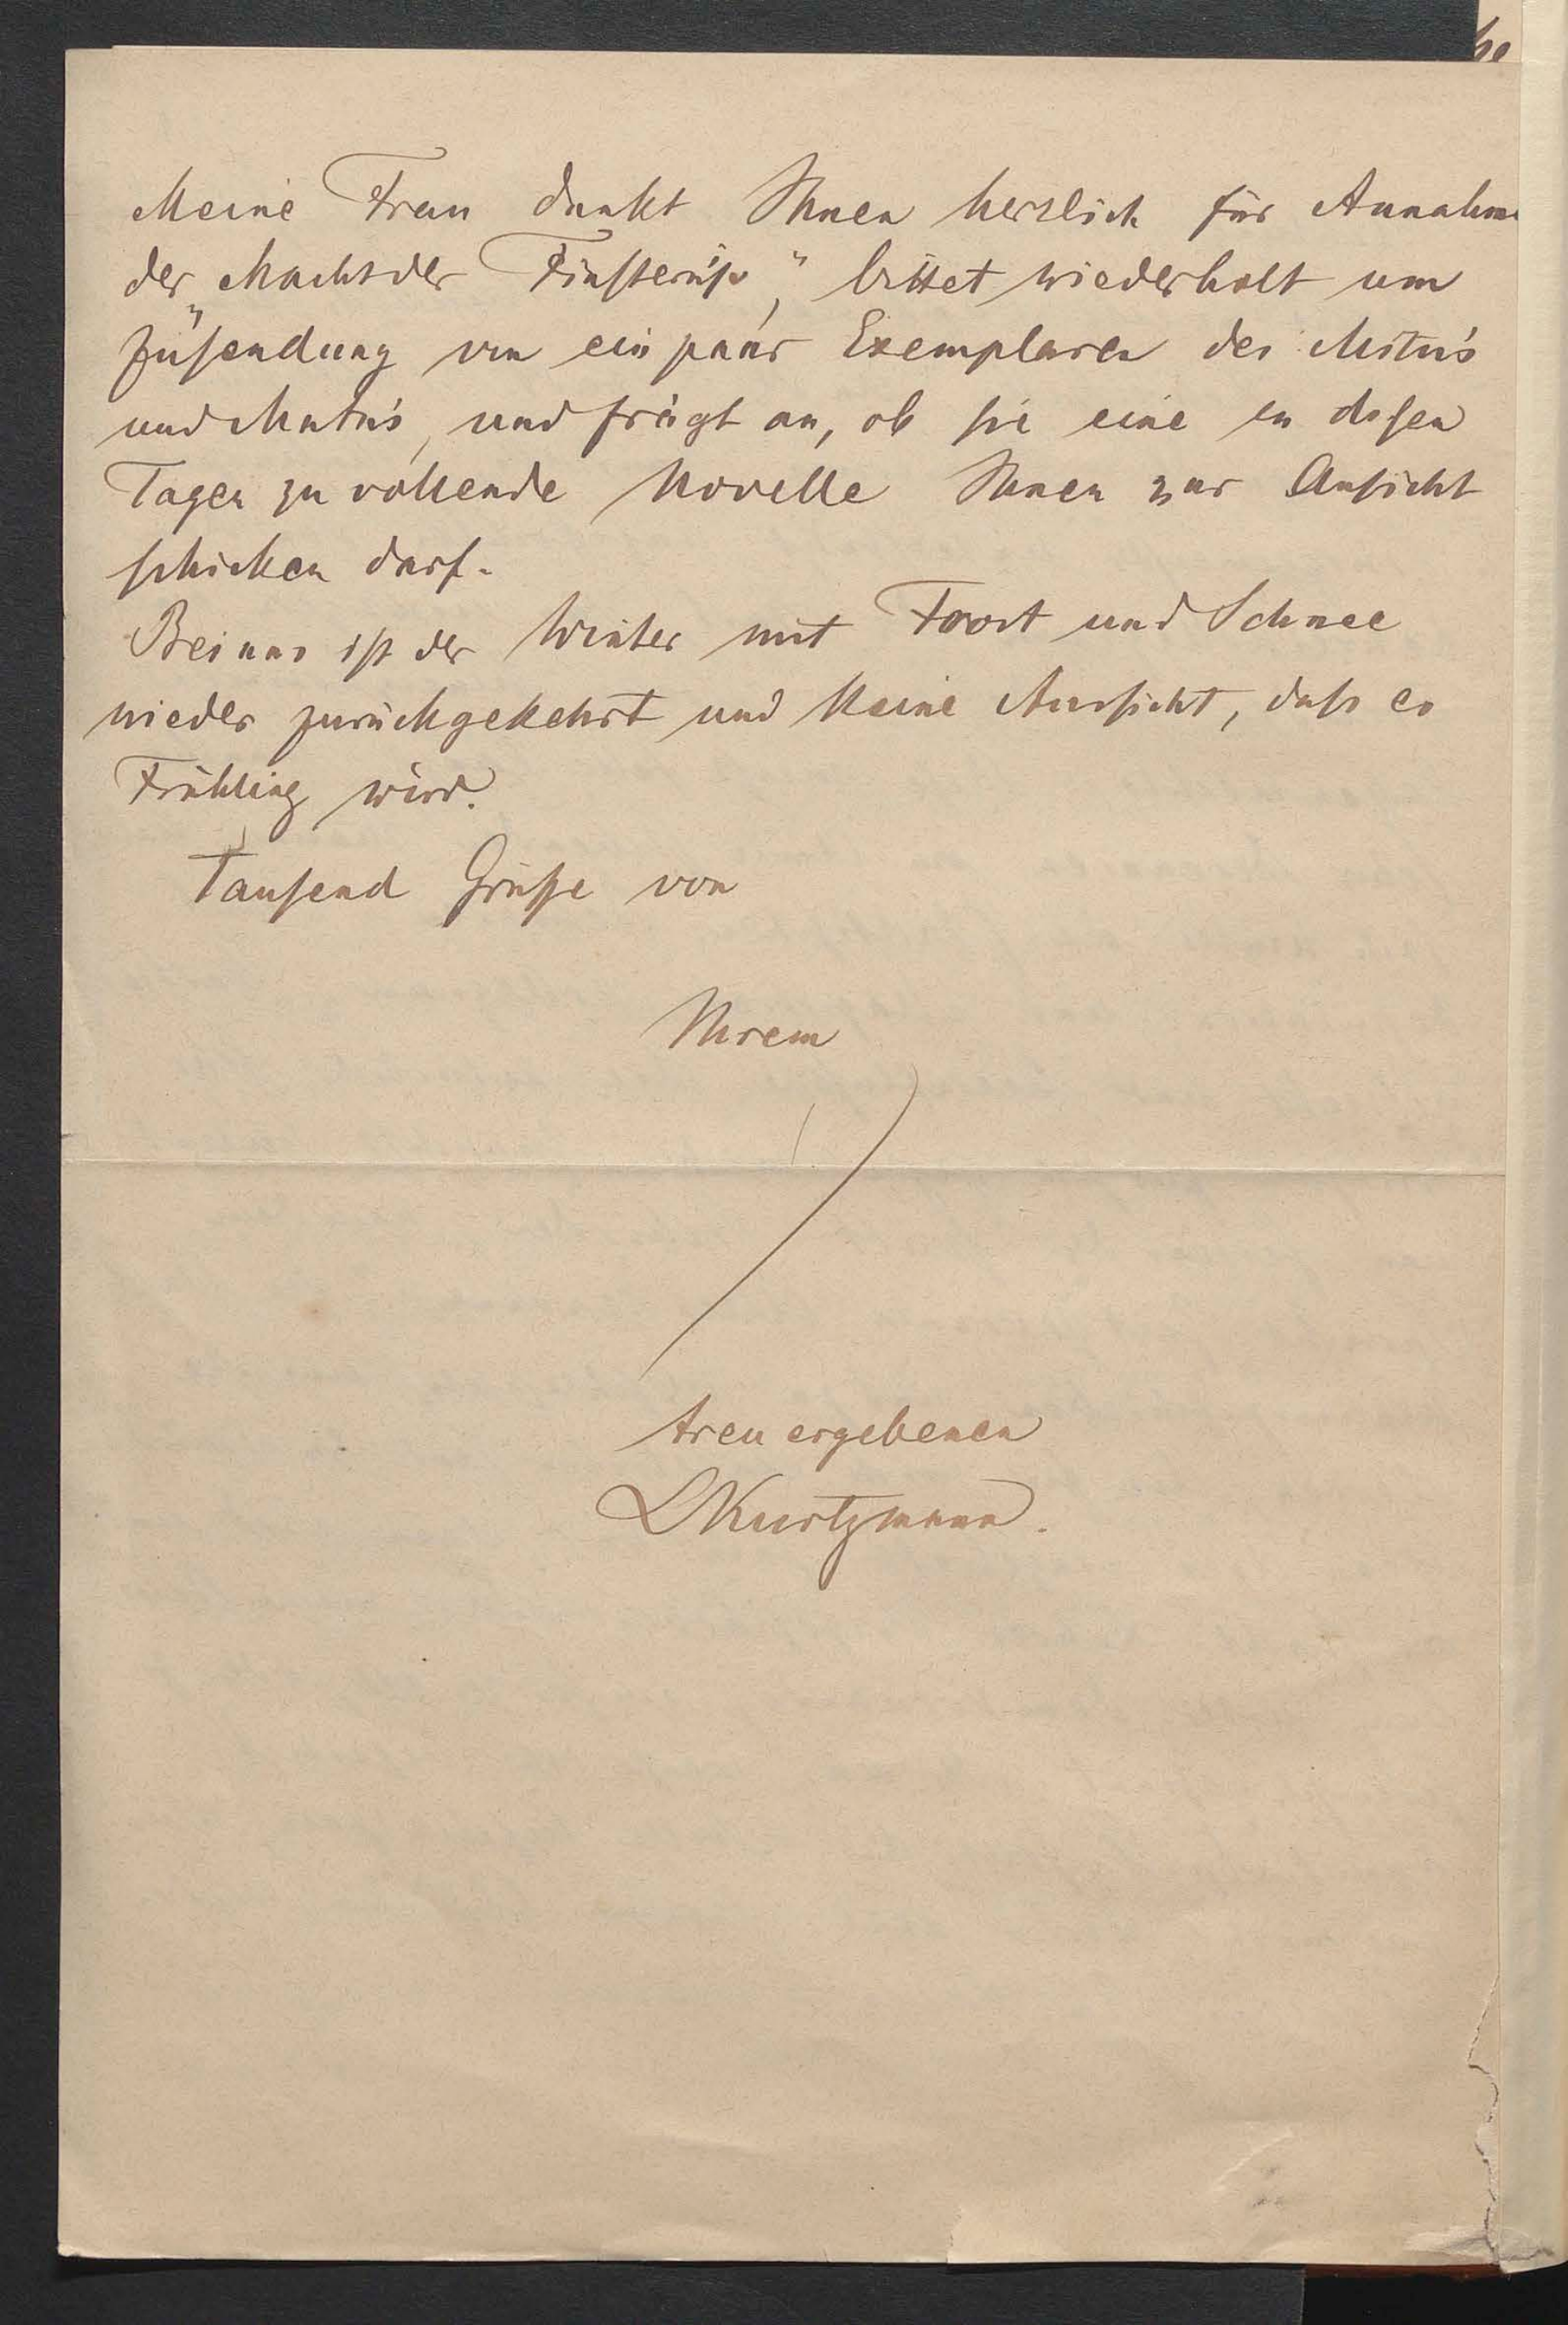 Meine Frau dankt Ihnen herzlich für Annahme
der „Macht der Finsterniß“, bittet wiederholt um
Zusendung von ein paar Exemplaren des
und und frägt an, ob sie eine in diesen
Tagen zu vollende Novelle Ihnen zur Ansicht
schicken darf.
Bei uns ist der Winter mit Frost und Schnee
wieder zurückgekehrt und keine Aussicht, daß es
Frühling wird.
Tausend Grüße von
Ihrem
treu ergebenen
LKurtzmann.